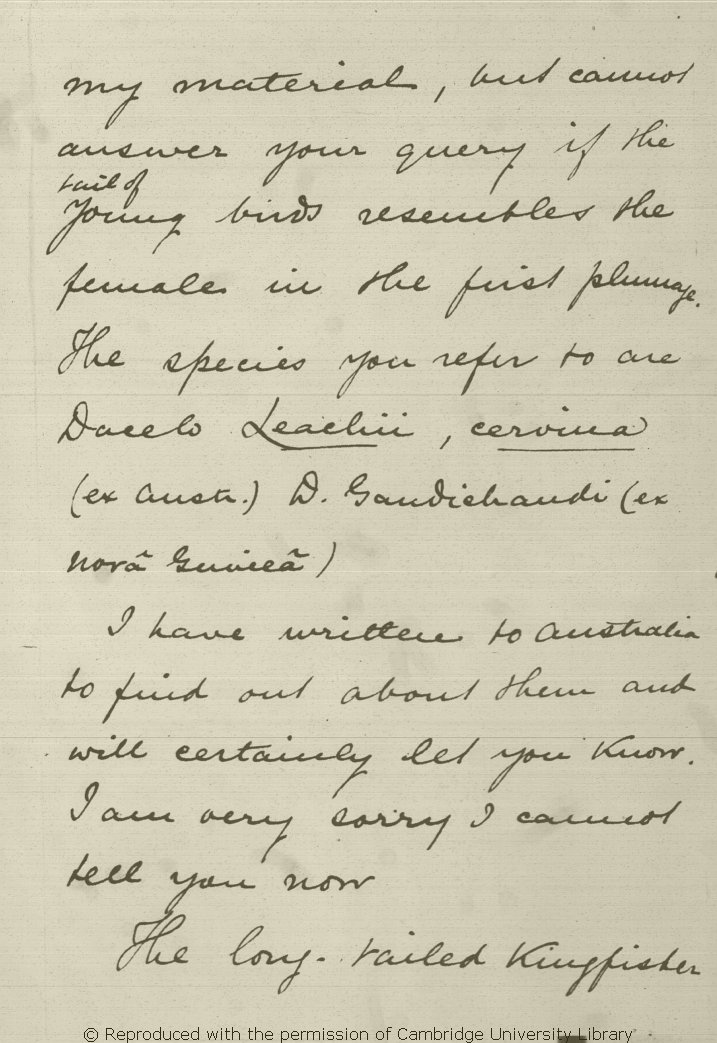 my material, but cannot
answer your query if the
tail of
young birds resembles the
female in the first plumage.
The species you refer to are
Dacelo Leachii, cervina
(ex Austr.) D. Gaudichaudi (ex
Novâ Guineâ)
I have written to Australia
to find out about them and
will certainly let you know.
I am very sorry I cannot
tell you now
The long-tailed Kingfisher
© Reproduced with the permission of Cambridge University Library